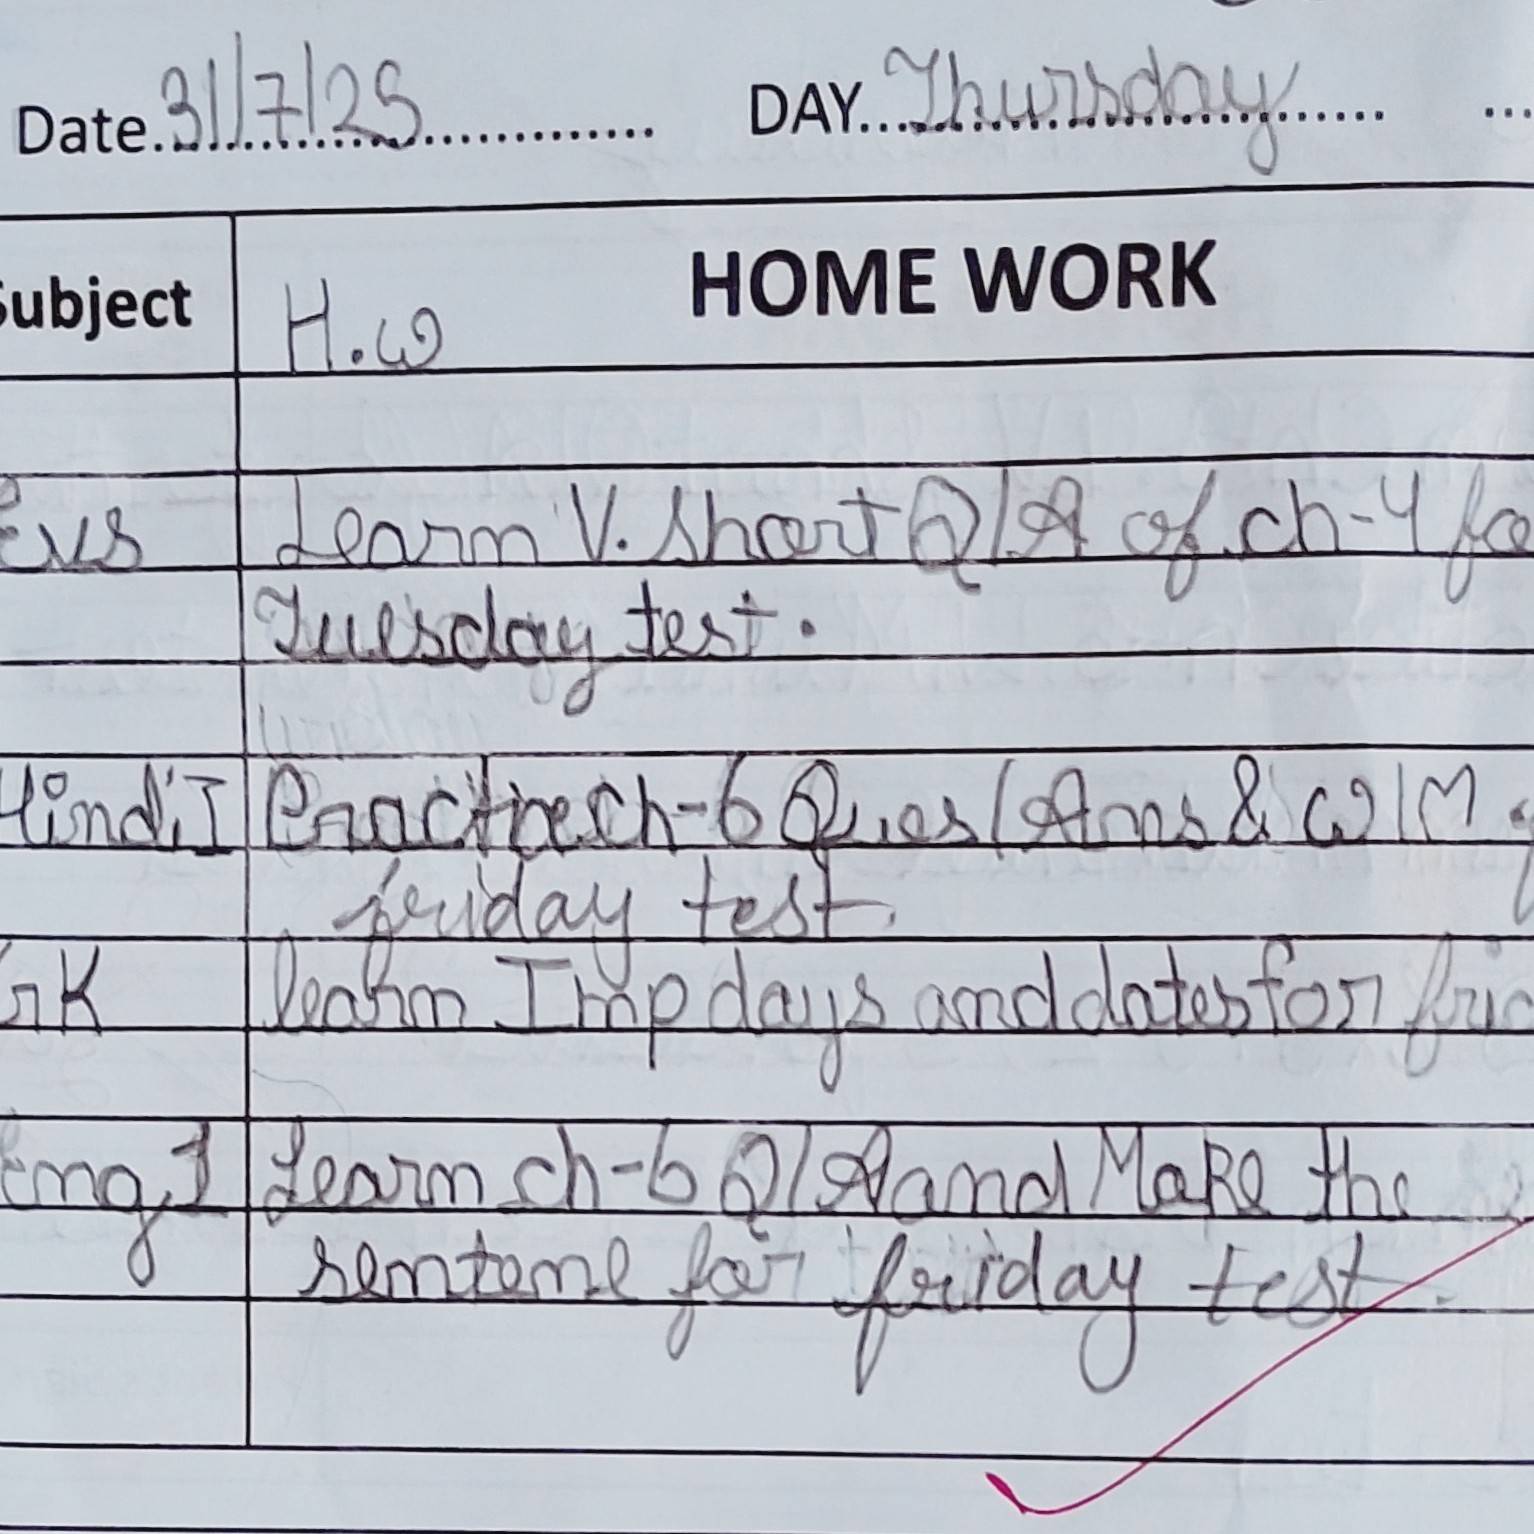 Date 31/7/25 DAY Thursday
Subject H.w HOME WORK
Evs Learn V. short Q/A of ch-4 for
Tuesday test.
Hindi I Practice ch-6 Ques/Ans & W/M
friday test.
GK learn Imp days and dates for frid
Eng I Learn ch-6 Q/A and Make the
sentene for friday test.